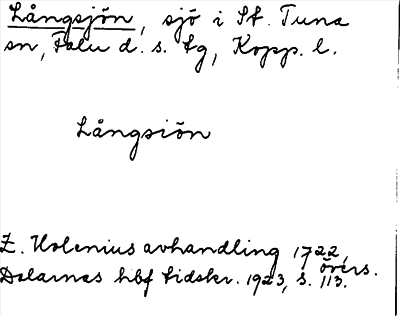 Långsjön, sjö i St. Tuna
sn, Falu d. s. tg, Kopp. l.
Långsiön
E. Holenius avhandling 1722, övers.
Dalarnas hbf tidskr. 1923, s. 113.